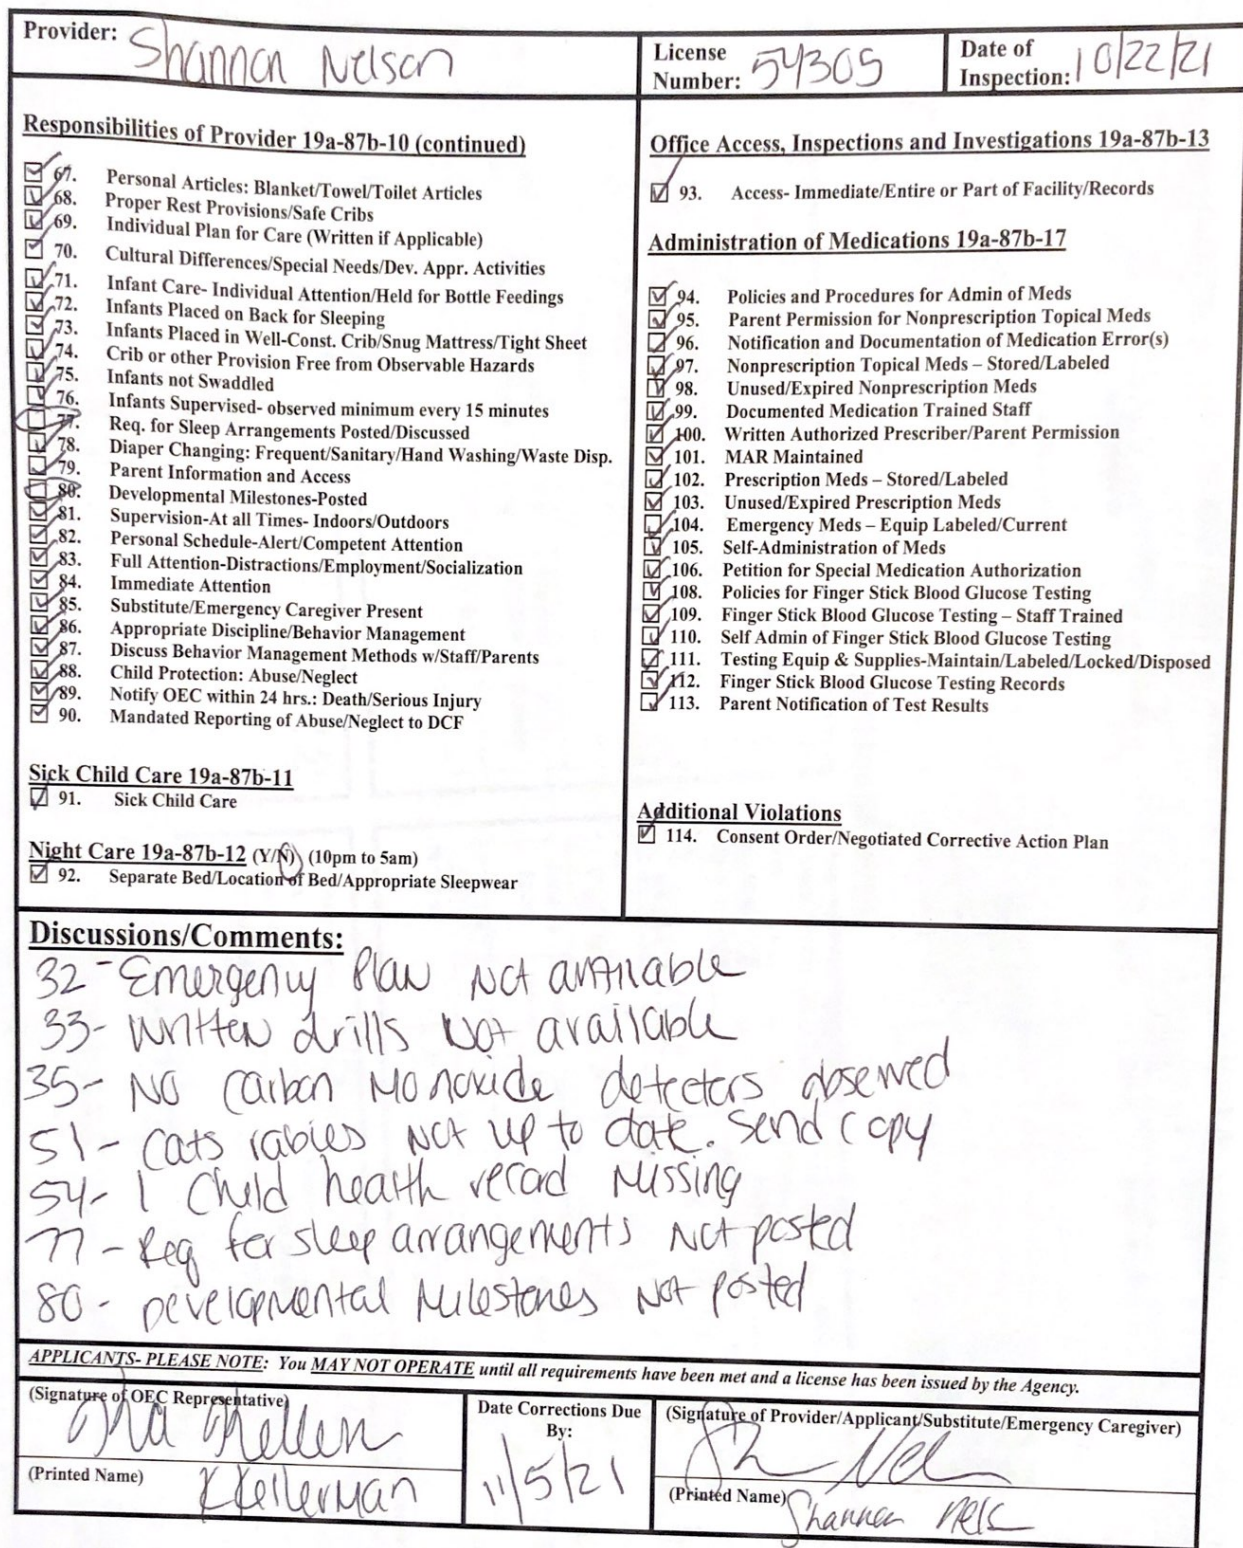 Provider: Shannon Nelson
License Number: 54305
Date of Inspection: 10/22/21
Responsibilities of Provider 19a-87b-10 (continued)
67. Personal Articles: Blanket/Towel/Toilet Articles
68. Proper Rest Provisions/Safe Cribs
69. Individual Plan for Care (Written if Applicable)
70. Cultural Differences/Special Needs/Dev. Appr. Activities
71. Infant Care- Individual Attention/Held for Bottle Feedings
72. Infants Placed on Back for Sleeping
73. Infants Placed in Well-Const. Crib/Snug Mattress/Tight Sheet
74. Crib or other Provision Free from Observable Hazards
75. Infants not Swaddled
76. Infants Supervised- observed minimum every 15 minutes
77. Req. for Sleep Arrangements Posted/Discussed
78. Diaper Changing: Frequent/Sanitary/Hand Washing/Waste Disp.
79. Parent Information and Access
80. Developmental Milestones-Posted
81. Supervision-At all Times- Indoors/Outdoors
82. Personal Schedule-Alert/Competent Attention
83. Full Attention-Distractions/Employment/Socialization
84. Immediate Attention
85. Substitute/Emergency Caregiver Present
86. Appropriate Discipline/Behavior Management
87. Discuss Behavior Management Methods w/Staff/Parents
88. Child Protection: Abuse/Neglect
89. Notify OEC within 24 hrs.: Death/Serious Injury
90. Mandated Reporting of Abuse/Neglect to DCF
Sick Child Care 19a-87b-11
91. Sick Child Care
Night Care 19a-87b-12 (Y/N) (10pm to 5am)
92. Separate Bed/Location of Bed/Appropriate Sleepwear
Office Access, Inspections and Investigations 19a-87b-13
93. Access- Immediate/Entire or Part of Facility/Records
Administration of Medications 19a-87b-17
94. Policies and Procedures for Admin of Meds
95. Parent Permission for Nonprescription Topical Meds
96. Notification and Documentation of Medication Error(s)
97. Nonprescription Topical Meds – Stored/Labeled
98. Unused/Expired Nonprescription Meds
99. Documented Medication Trained Staff
100. Written Authorized Prescriber/Parent Permission
101. MAR Maintained
102. Prescription Meds – Stored/Labeled
103. Unused/Expired Prescription Meds
104. Emergency Meds – Equip Labeled/Current
105. Self-Administration of Meds
106. Petition for Special Medication Authorization
108. Policies for Finger Stick Blood Glucose Testing
109. Finger Stick Blood Glucose Testing – Staff Trained
110. Self Admin of Finger Stick Blood Glucose Testing
111. Testing Equip & Supplies-Maintain/Labeled/Locked/Disposed
112. Finger Stick Blood Glucose Testing Records
113. Parent Notification of Test Results
Additional Violations
114. Consent Order/Negotiated Corrective Action Plan
Discussions/Comments:
32 - Emergency Plan Not available
33 - Written drills Not available
35 - No Carbon Monoxide detectors observed
51 - Cats rabies Not up to date. Send copy
54 - 1 Child health record Missing
77 - Req for sleep arrangements Not posted
80 - Developmental Milestones Not posted
APPLICANTS- PLEASE NOTE: You MAY NOT OPERATE until all requirements have been met and a license has been issued by the Agency.
(Signature of OEC Representative)
(Printed Name) K Kellerman
Date Corrections Due By:
11/5/21
(Signature of Provider/Applicant/Substitute/Emergency Caregiver)
(Printed Name) Shannon Nels